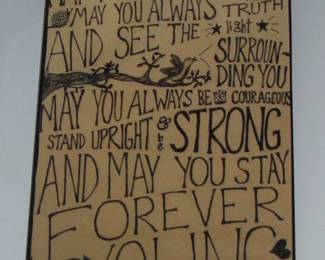 MAY YOU ALWAYS
TRUTH
AND SEE THE light
SURROUN-
DING YOU
MAY YOU ALWAYS BE COURAGEOUS
STAND UPRIGHT & be STRONG
AND MAY YOU STAY
FOREVER
YOUNG